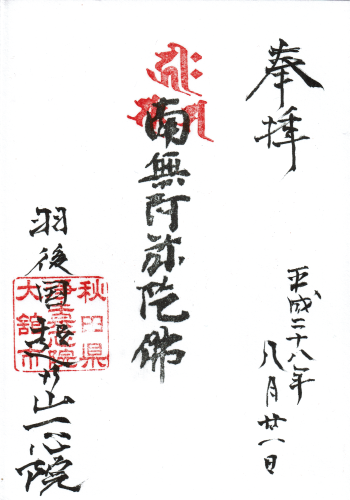 奉拝
平成二十八年
八月廿一日
南無阿弥陀佛
羽後国
山一心院
秋田県
大舘市